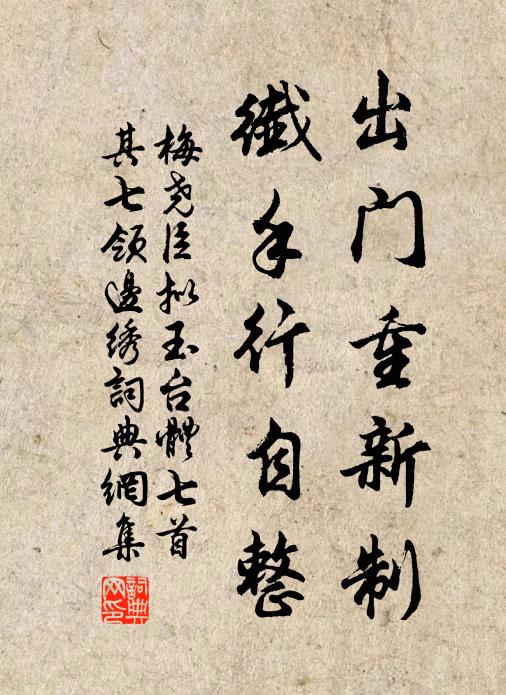 出门重新制
纎手行自整
梅尧臣拟玉台體七首
其七领邊绣詞典網集
詞典网印